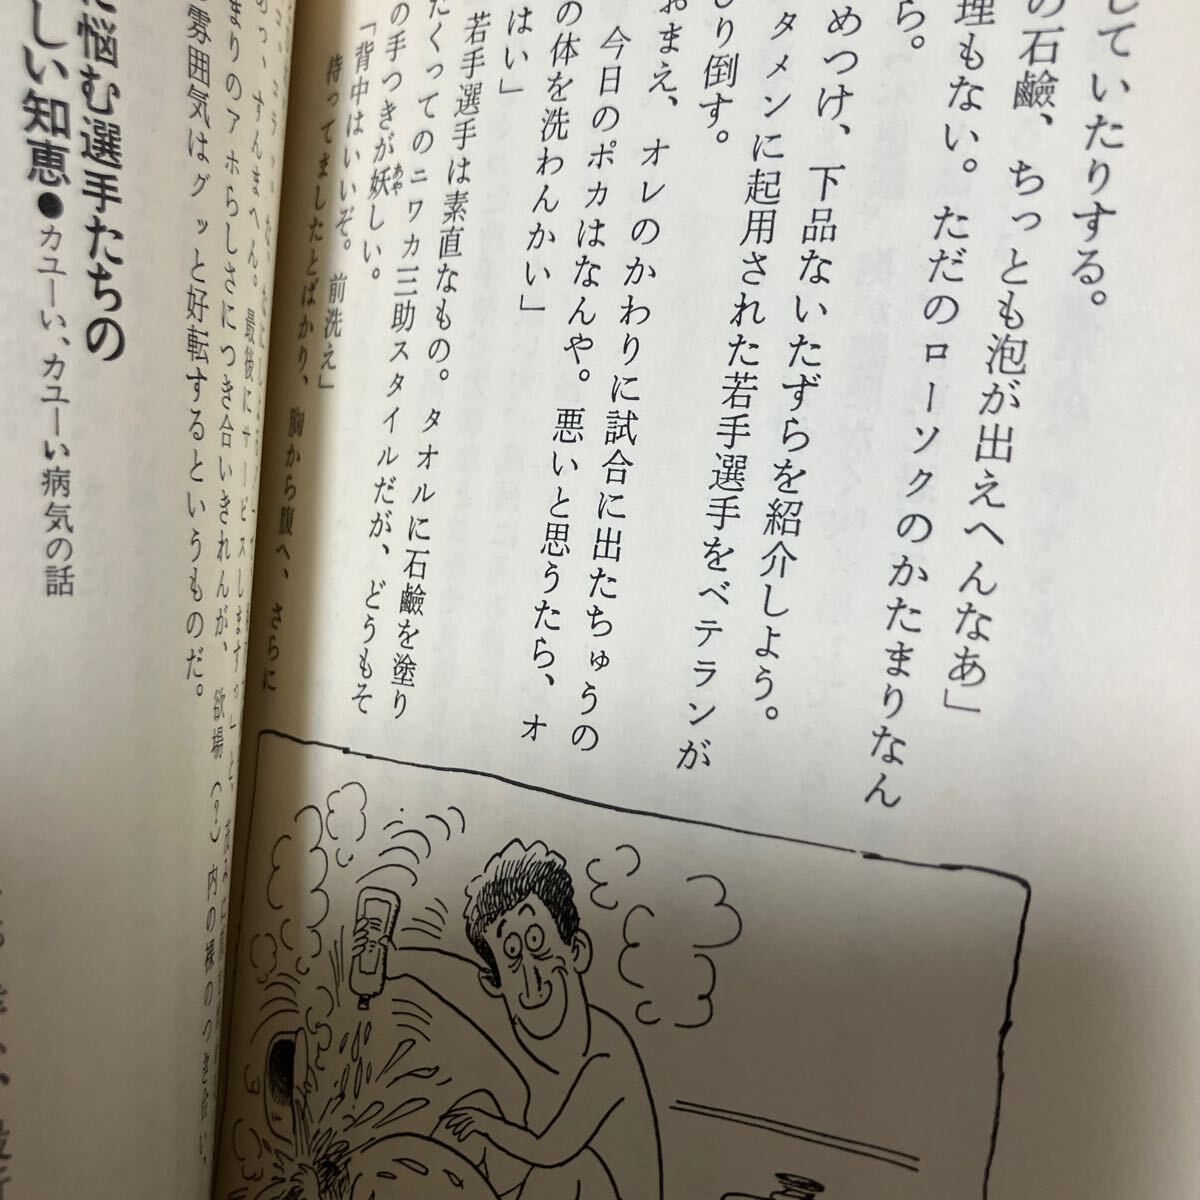 していたりする。
の石鹼、ちっとも泡が出えへんなあ」
理もない。ただのローソクのかたまりなん
ら。
めつけ、下品ないたずらを紹介しよう。
タメンに起用された若手選手をベテランが
り倒す。
おまえ、オレのかわりに試合に出たちゅうの
今日のポカはなんや。悪いと思うたら、オ
の体を洗わんかい」
はい」
若手選手は素直なもの。タオルに石鹼を塗り
たくってのニワカ三助スタイルだが、どうもそ
の手つきが妖しい。
あや
「背中はいいぞ。前洗え」
待ってましたとばかり、胸から腹へ、さらに
めっ、すんまへん。最後にサービスしますっ」と、
まりのアホらしさにつき合いきれんが、欲場(?)内の裸のつき合い、
雰囲気はグッと好転するというものだ。
に悩む選手たちの
しい知恵●カユーい、カユーい病気の話